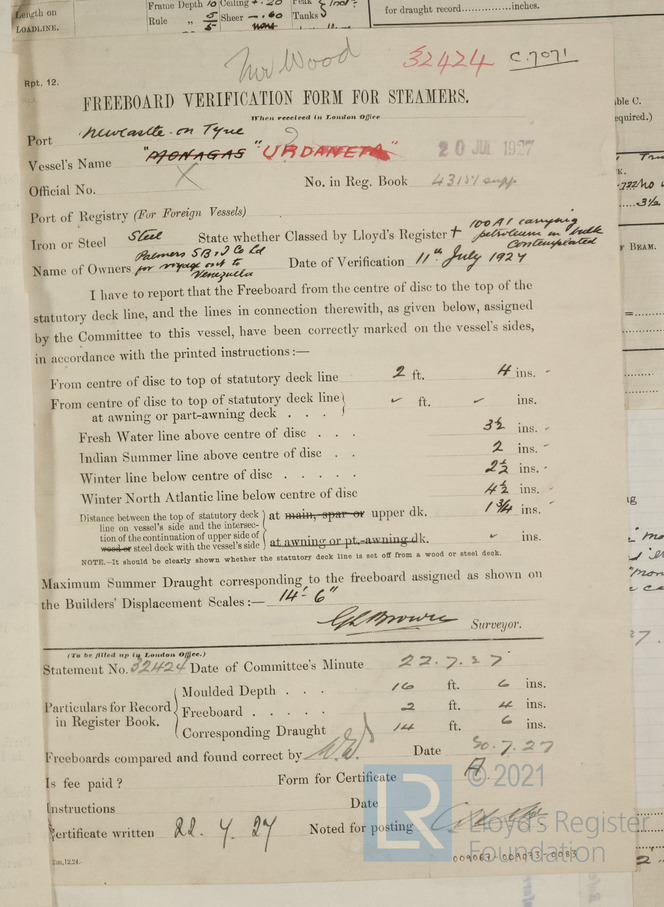 Length on
LOADLINE.
Frame Depth 10
Rule „ 5
Ceiling
Sheer
Peak
Tanks
for draught record...............inches.
Mr Wood
32424
C.7071
Rpt. 12.
FREEBOARD VERIFICATION FORM FOR STEAMERS.
When received in London Office
Port Newcastle-on Tyne
Vessel's Name "MONAGAS" "URDANETA" ?
20 JUL 1927
Official No. X No. in Reg. Book 43151 supp
Port of Registry (For Foreign Vessels)
Iron or Steel Steel State whether Classed by Lloyd's Register + 100A1 carrying petroleum in bulk Contemplated
Name of Owners Palmers S B & I Co Ld for voyage out to Venezuela Date of Verification 11th July 1927
I have to report that the Freeboard from the centre of disc to the top of the
statutory deck line, and the lines in connection therewith, as given below, assigned
by the Committee to this vessel, have been correctly marked on the vessel's sides,
in accordance with the printed instructions:—
From centre of disc to top of statutory deck line 2 ft. 4 ins.
From centre of disc to top of statutory deck line
at awning or part-awning deck . . . ft. ins.
Fresh Water line above centre of disc . . . 3½ ins.
Indian Summer line above centre of disc . . 2 ins.
Winter line below centre of disc . . . . . 2½ ins.
Winter North Atlantic line below centre of disc 4½ ins.
Distance between the top of statutory deck
line on vessel's side and the intersec-
tion of the continuation of upper side of
wood or steel deck with the vessel's side
at main, spar or upper dk. 1¾ ins.
at awning or pt.-awning dk. ins.
NOTE.—It should be clearly shown whether the statutory deck line is set off from a wood or steel deck.
Maximum Summer Draught corresponding to the freeboard assigned as shown on
the Builders' Displacement Scales:— 14'-6"
Surveyor.
(To be filled up in London Office.)
Statement No. 32424 Date of Committee's Minute 22.7.27
Particulars for Record
in Register Book.
Moulded Depth . . . 16 ft. 6 ins.
Freeboard . . . . . 2 ft. 4 ins.
Corresponding Draught 14 ft. 6 ins.
Freeboards compared and found correct by Date 30.7.27
Is fee paid? Form for Certificate A.
Instructions Date
Certificate written 22.7.27 Noted for posting
© 2021
LR
Lloyd's Register
Foundation
009063-009073-0083